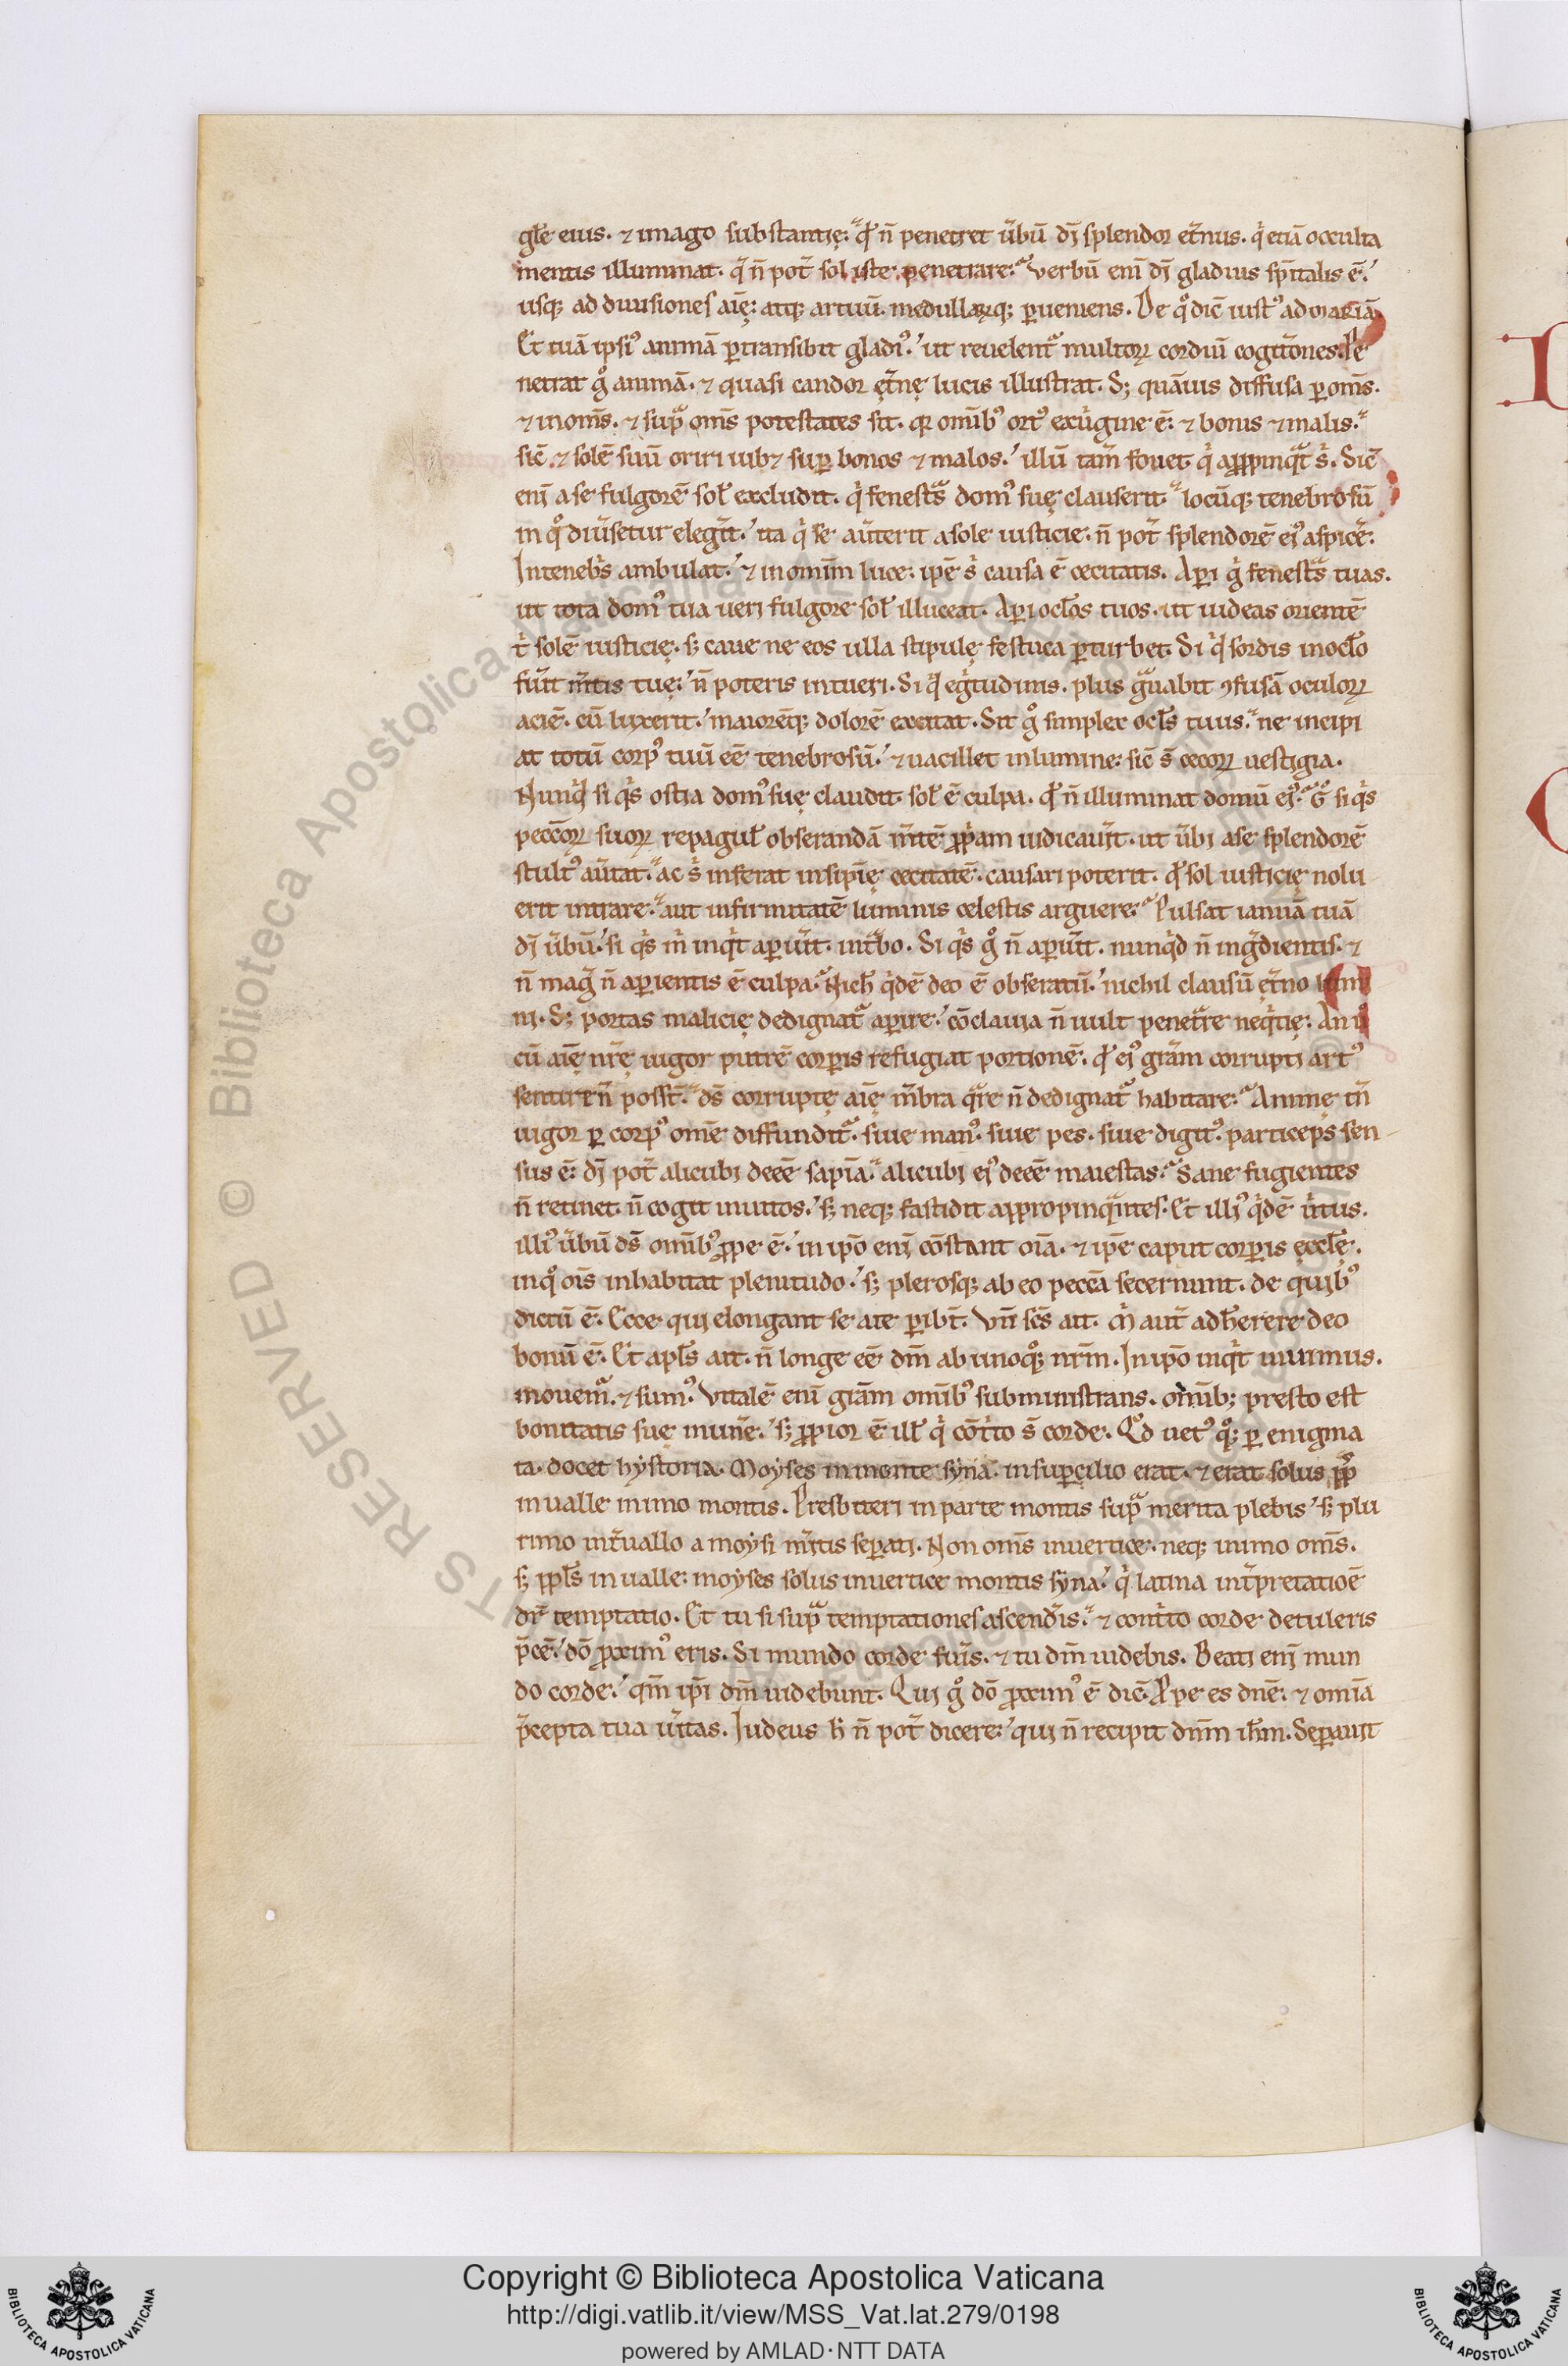 gl̅e eius. ⁊ imago substantię. qđ n̄ penetret ub̅u dī splendor et̅nus. q̇ etiā occulta
mentis illuminat. q̅ n̄ pot̅ sol iste penetrare. Verbū enī dī gladius sp̅italis ē.
usq; ad diuisiones aīę: atq; artuū. medullarꝗ; ꝑueniens. De q̊ dic̅ iust᷒ ad mariā
Et tuā ipsi᷒ animā ꝑtransibit gladi᷒. ut reuelent᷑ multoꝝ cordiū cogit̅ones. Pe
netrat g̊ animā. ⁊ quasi candor ęt̅nę lucis illustrat. S; quāuis diffusa ꝑ om̅s.
⁊ in om̅s. ⁊ sup̅ om̅s potestates sit. qr omīb᷒ ort᷒ ex uir̅gine ē: ⁊ bonis ⁊ malis.
sic̅ ⁊ solē suū oriri iub⁊ suꝑ bonos ⁊ malos. illū tam̅ fouet q̇ aꝓpinq̅t ṡ. Sic̅
enī a se fulgorē sol̅ excludit. q̇ fenest̅s dom᷒ suę clauserit locūq; tenebrosū
in q̊ diu̅setur eleg̅it. ita q̇ se au̅terit a sole iusticie. n̄ pot̅ splendorē ei᷒ aspice̅.
In teneb̅s ambulat. ⁊ in omīm luce: ipē ṡ causa ē cecitatis. Aꝑi g̊ fenest̅s tuas.
ut tota dom᷒ tua ueri fulgore sol̅ illuceat. Aꝑi ocl̅os tuos. ut uideas orientē
ṫ solē iusticię. s; caue ne eos ulla stipulę festuca ꝑturbet. Si q̇d sordis in ocl̅o
fu̅it m̅tis tuę. n̄ poteris intueri. Si q̇d eġtudinis. plus g̅uabit ꝯfusā oculoꝝ
aciē. cū luxerit. maiorēq; dolorē excitat. Sit g̊ simplex ocl̅s tuus. ne incipi
at totū corp᷒ tuū eē tenebrosū. ⁊ uacillet in lumine: sic̅ s̄ cecoꝝ uestigia.
Nunq̇d si q̇s ostia dom᷒ suę claudit. sol̅ ē culpa. qđ n̄ illuminat domū ei᷒. G̊ si q̇s
pecc̅oꝝ suoꝝ repagul̅ obserandā m̅tē ꝓṗam iudicau̅it. ut u̅bi a se splendorē
stult᷒ au̅tat. ac ṡ inferat insipīę cecitatē. causari poterit. qđ sol iusticię nolu
erit intrare. aut infirmitatē luminis celestis arguere. Pulsat ianuā tuā
dī u̅bū. si q̇s ṁ inq̇t aꝑu̅it. int̅bo. Si q̇s g̊ n̄ aꝑu̅it. nunq̇d n̄ ing̅dientis. ⁊
n̄ mag̅ n̄ aꝑientis ē culpa. Nich̅ q̇dē deo ē obseratū. nichil clausū ęt̅no lumi
ni. S; portas malicię dedignat᷑ aꝑire. cōclauia n̄ uult penet̅re neq̇tię. An u̅
cū aīę nr̅ę uigor putrē corꝑis refugiat portionē. qđ ei᷒ gr̅am corrupti art᷒
sentire n̄ poss̅t. ds̅ corruptę aīę m̅bra q̅re n̄ dedignat᷑ habitare. Animę tn̅
uigor ꝑ corp᷒ omē diffundit᷑. siue man᷒. siue pes. siue digit᷒. particeps sen-
sus ē: dī pot̅ alicubi deeē sapīa. alicubi ei᷒ deeē maiestas. Sane fugientes
n̄ retinet. n̄ cogit inuitos. s; neq; fastidit appropinq̅ntes. Et illi᷒ q̇dē uı̅tus.
illi᷒ u̅bū ds̅ omīb᷒ ꝓpe ē. in ipō enī cōstant oīa. ⁊ ipē caput corꝑis ęccl̅ę.
in q̊ ois̅ inhabitat plenitudo. s; plerosq; ab eo pecc̅a secernunt. de quib᷒
dictū ē. Ecce qui elongant se a te ꝑib̅t. Vn̄ sc̅s ait. ṁ aut̅ adh̅erere deo
bonū ē. Et apl̅s ait. n̄ longe eē dm̅ ab unoq̊q; nr̅m. In ipō inq̇t uiuimus.
mouem᷑. ⁊ sum᷒. Vitalē enī gr̅am omīb᷒ subministrans. omīb; presto est
bonitatis suę mun̅e. s; ꝓpior ē ill̅ q̇ cōṫto s̄ corde. Qđ uet᷒ q̊q; ꝑ enigma
ta. docet hystoria. Moyses in monte syna. in suꝑcilio erat. ⁊ erat solus. ppl̅s
in ualle in imo montis. Presbiteri in parte montis sup̅ merita plebis s; plu
rimo int̅uallo a moysi m̅itis seꝑati. Non om̅s in uertice. neq; in imo om̅s.
s; ppl̅s in ualle: moyses solus in uertice montis syna. q̇ latina int̅pretatioē
dr̅ temptatio. Et tu si sup̅ temptationes ascend̅is. ⁊ conṫto corde detuleris
p̅cē. dō ꝓxim᷒ eris. Si mundo corde fu̅is. ⁊ tu dm̅ uidebis. Beati enī mun
do corde. qm̅ ip̅i dm̅ uidebunt. Qui g̊ dō ꝓxim᷒ ē dic̅. Ꝓpe es dn̅e. ⁊ omīa
p̅cepta tua uı̅tas. Iudeus h̅ n̄ pot̅ dicere. qui n̄ recipit dn̅m ih̅m. Seꝑauit
Copyright © Biblioteca Apostolica Vaticana
http://digi.vatlib.it/view/MSS_Vat.lat.279/0198
powered by AMLAD·NTT DATA
BIBLIOTECA APOSTOLICA VATICANA
BIBLIOTECA APOSTOLICA VATICANA